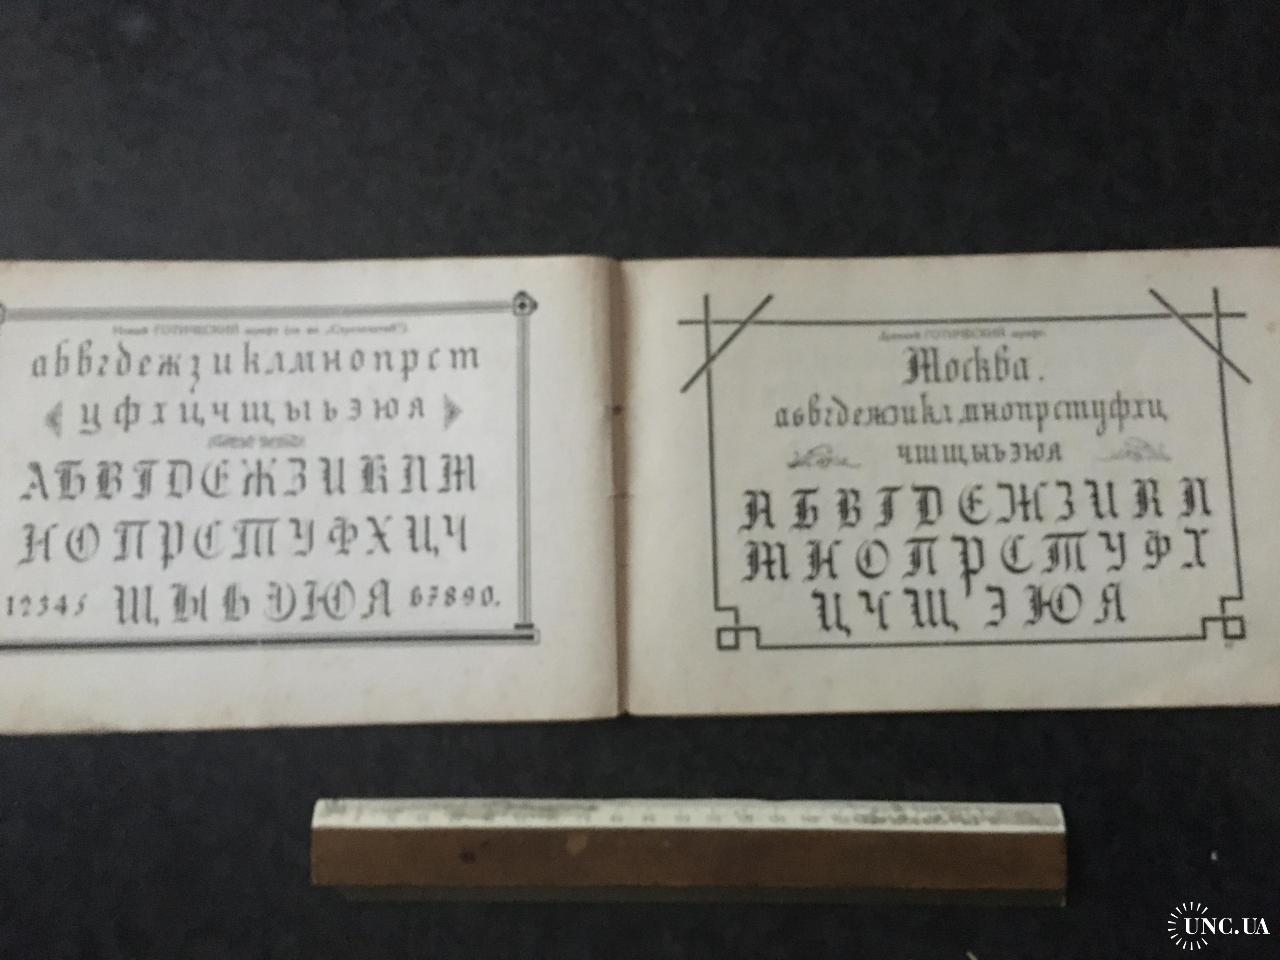 Новый ГОТИЧЕСКИЙ шрифт
абвгдежзиклмнопрст
уфхцчщыьэюя
АБВГДЕЖЗИКЛМ
НОПРСТУФХЦЧ
12345 ЩЫЬЭЮЯ 67890.
Древний ГОТИЧЕСКИЙ шрифт.
Москва.
абвгдежзиклмнопрстуфхц
чшщыьэюя
АБВГДЕЖЗИКЛ
МНОПРСТУФХ
ЦЧЩЭЮЯ
UNC.UA